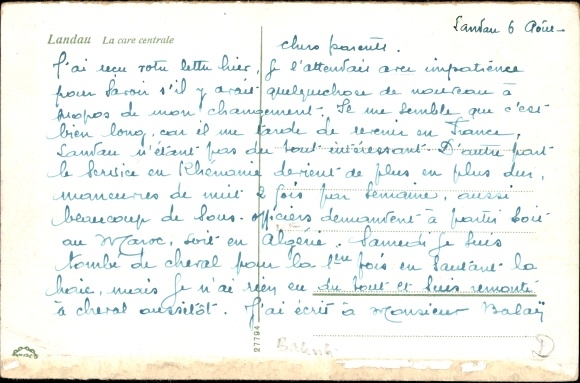 Landau La care centrale
Landau 6 Août
Chers parents.
J'ai reçu votre lettre hier, je l'attendais avec impatience
pour savoir s'il y avait quelquechose de nouveau à
propos de mon changement. Il me semble que c'est
bien long, car il me tarde de revenir en France,
Landau n'étant pas du tout intéressant. D'autre part
le service en Rhénanie devient de plus en plus dur,
manœuvres de nuit 2 fois par semaine, aussi
beaucoup de sous-officiers demandent à partir soit
au Maroc, soit en Algérie. Samedi je suis
tombé de cheval pour la 1ère fois en sautant la
haie, mais je n'ai rien eu du tout et suis remonté
à cheval aussitôt. J'ai écrit à Monsieur Balaÿ
27794
D